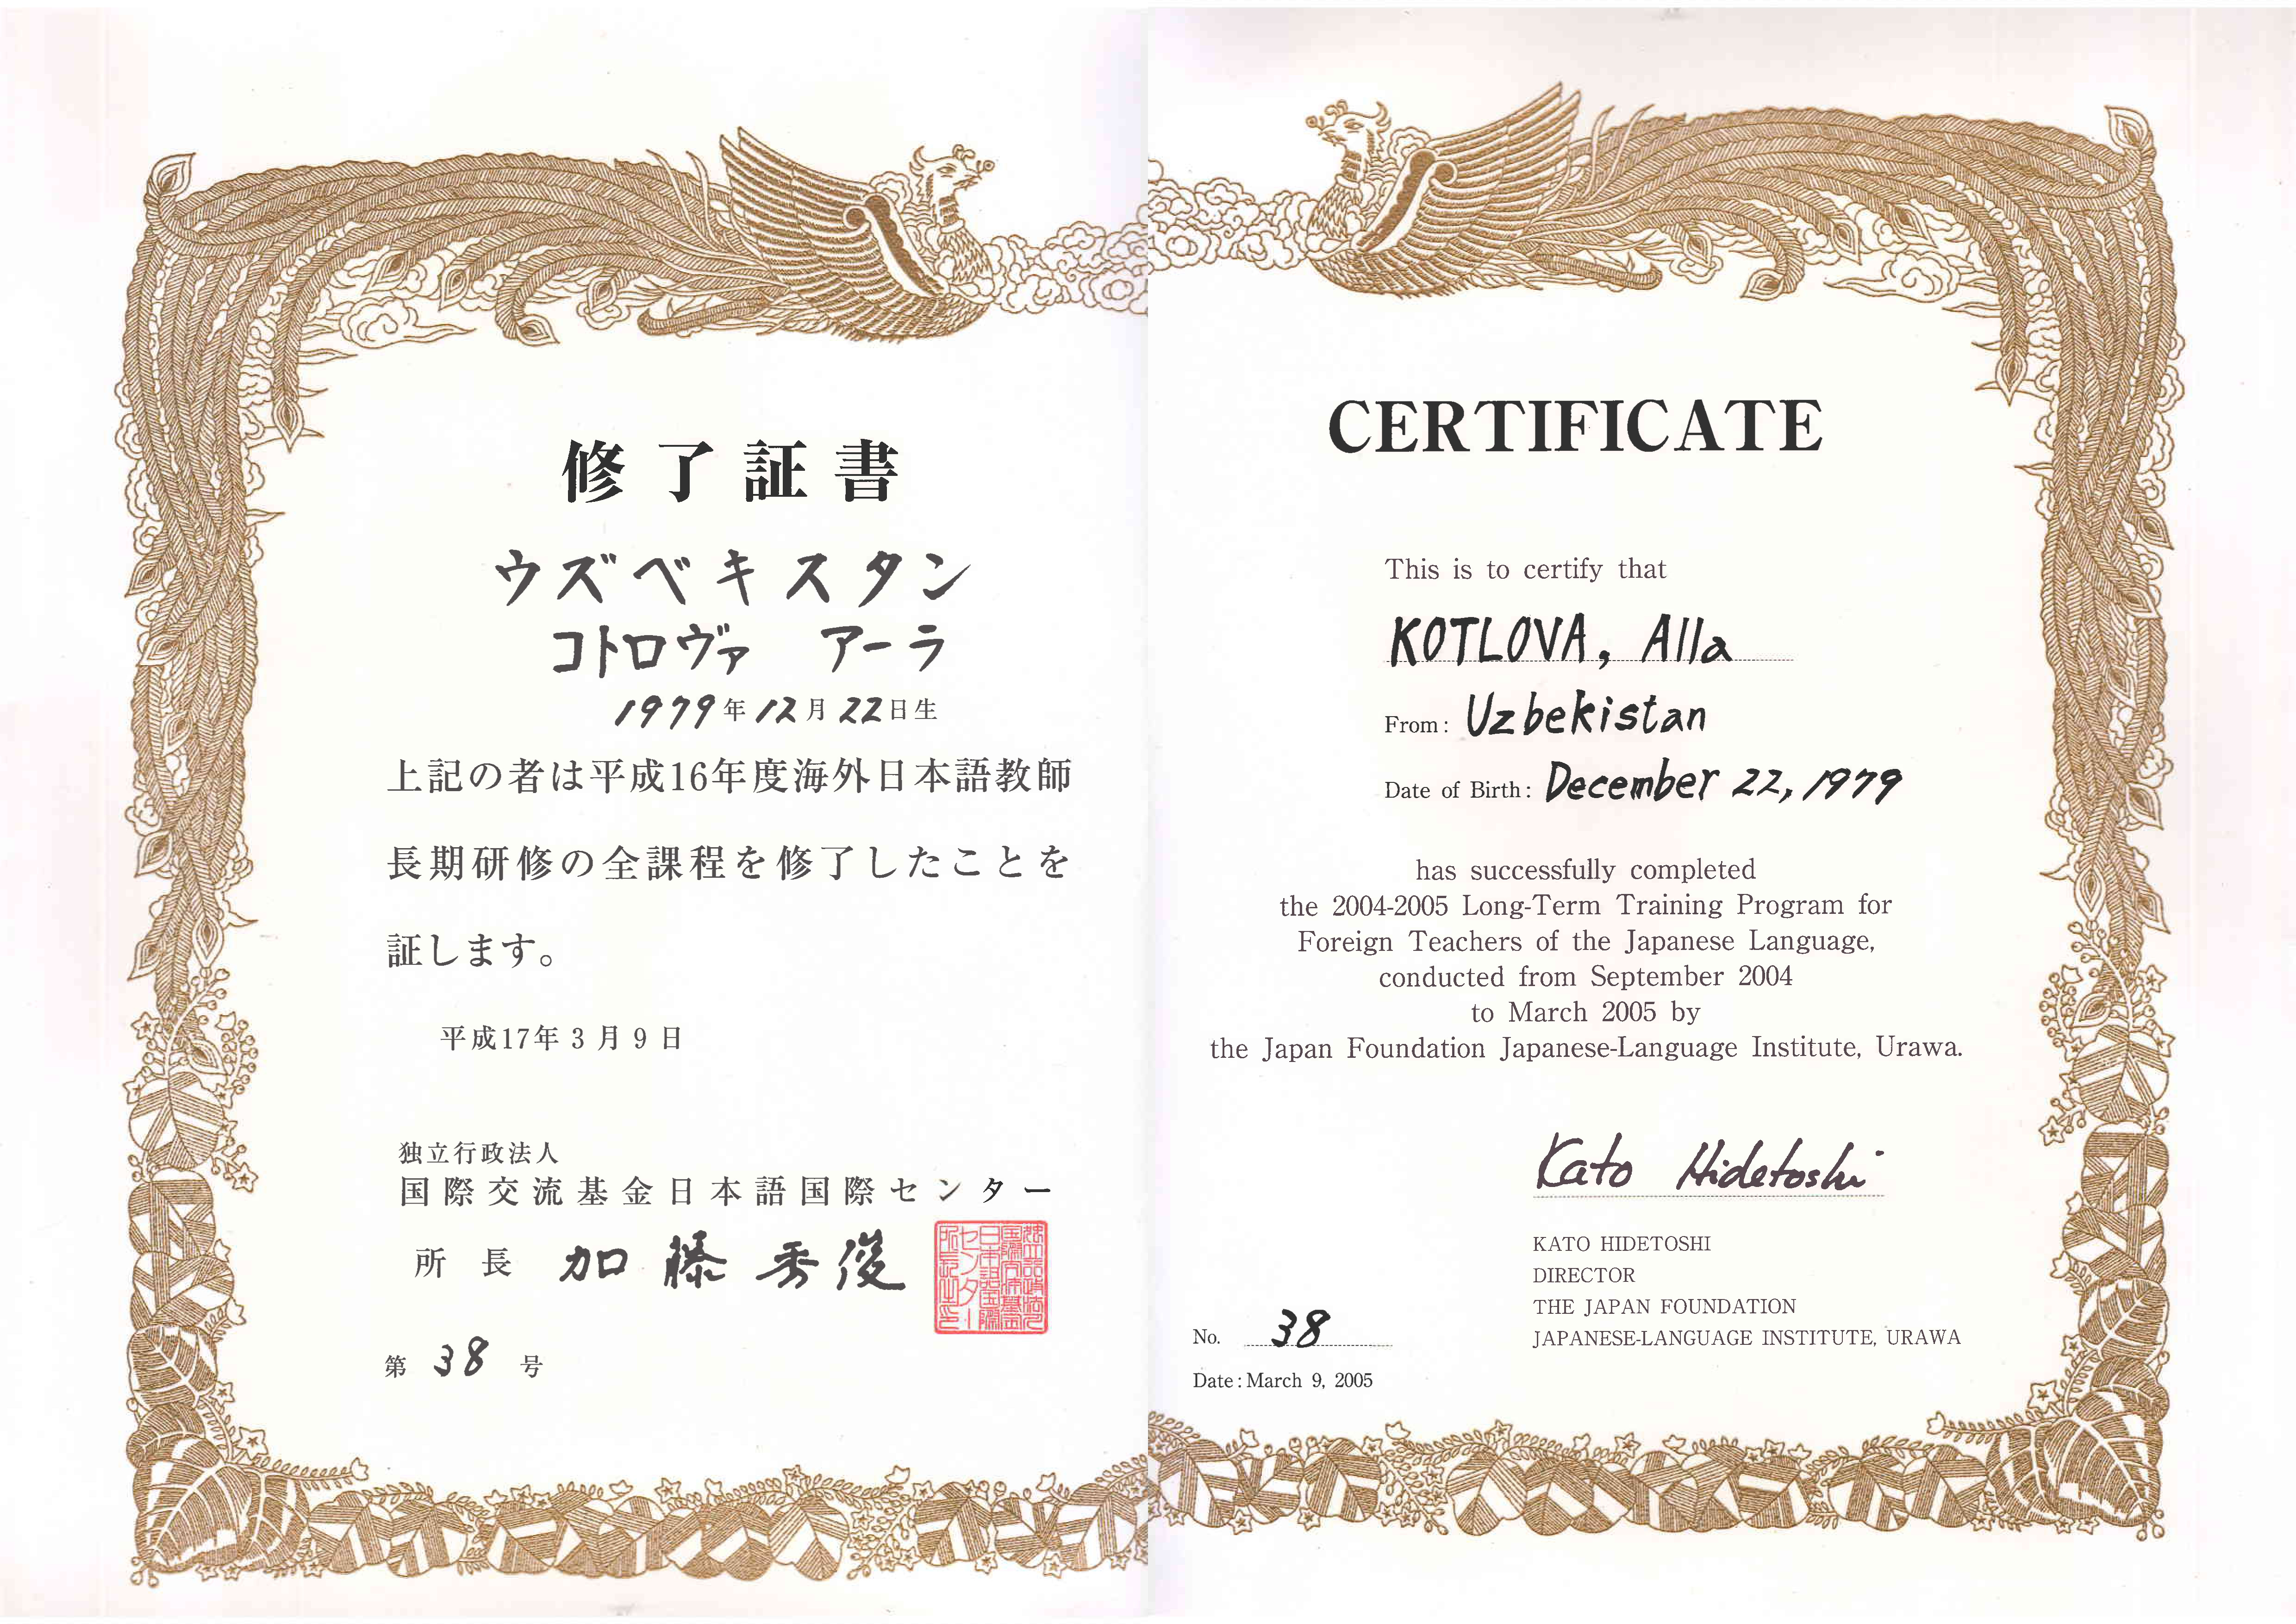 修了証書
ウズベキスタン
コトロヴァ アーラ
1979年12月22日生
上記の者は平成16年度海外日本語教師
長期研修の全課程を修了したことを
証します。
平成17年3月9日
独立行政法人
国際交流基金日本語国際センター
所長 加藤秀俊
第 38 号
CERTIFICATE
This is to certify that
KOTLOVA, Alla
From: Uzbekistan
Date of Birth: December 22, 1979
has successfully completed
the 2004-2005 Long-Term Training Program for
Foreign Teachers of the Japanese Language,
conducted from September 2004
to March 2005 by
the Japan Foundation Japanese-Language Institute, Urawa.
Kato Hidetoshi
KATO HIDETOSHI
DIRECTOR
THE JAPAN FOUNDATION
JAPANESE-LANGUAGE INSTITUTE, URAWA
No. 38
Date: March 9, 2005